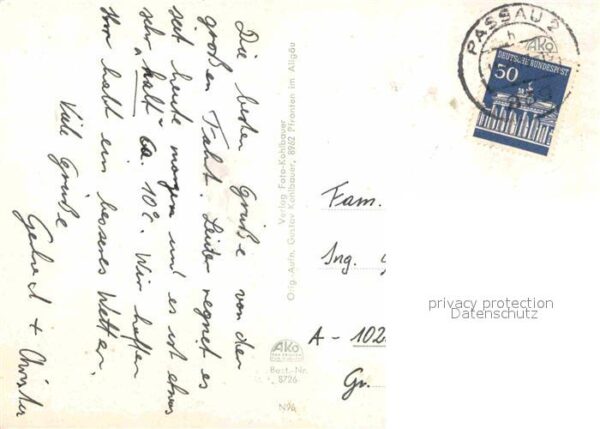 Die besten Grüße von der
großen Fahrt. Leider regnet es
seit heute morgen und es ist etwas
sehr kalt ca. 10°. Wir hoffen
Ihr habt ein besseres Wetter.
Viele Grüße
Gerhard + Christer
Verlag Foto-Kohlbauer
Orig.-Aufn. Gustav Kohlbauer, 8962 Pfronten im Allgäu
AKO
Best.-Nr.
8726
N96
PASSAU 2
h
AKO
DEUTSCHE BUNDESPOST
50
Fam.
Ing.
A - 102
Gr.
privacy protection
Datenschutz